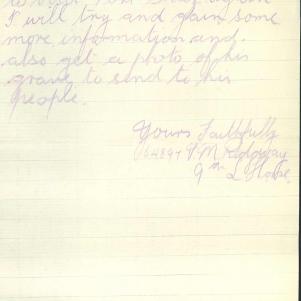 I will try and gain some
more information and
also get a photo of his
grave to send to his
people.
Yours Faithfully
Ridgway
9th L Horse.